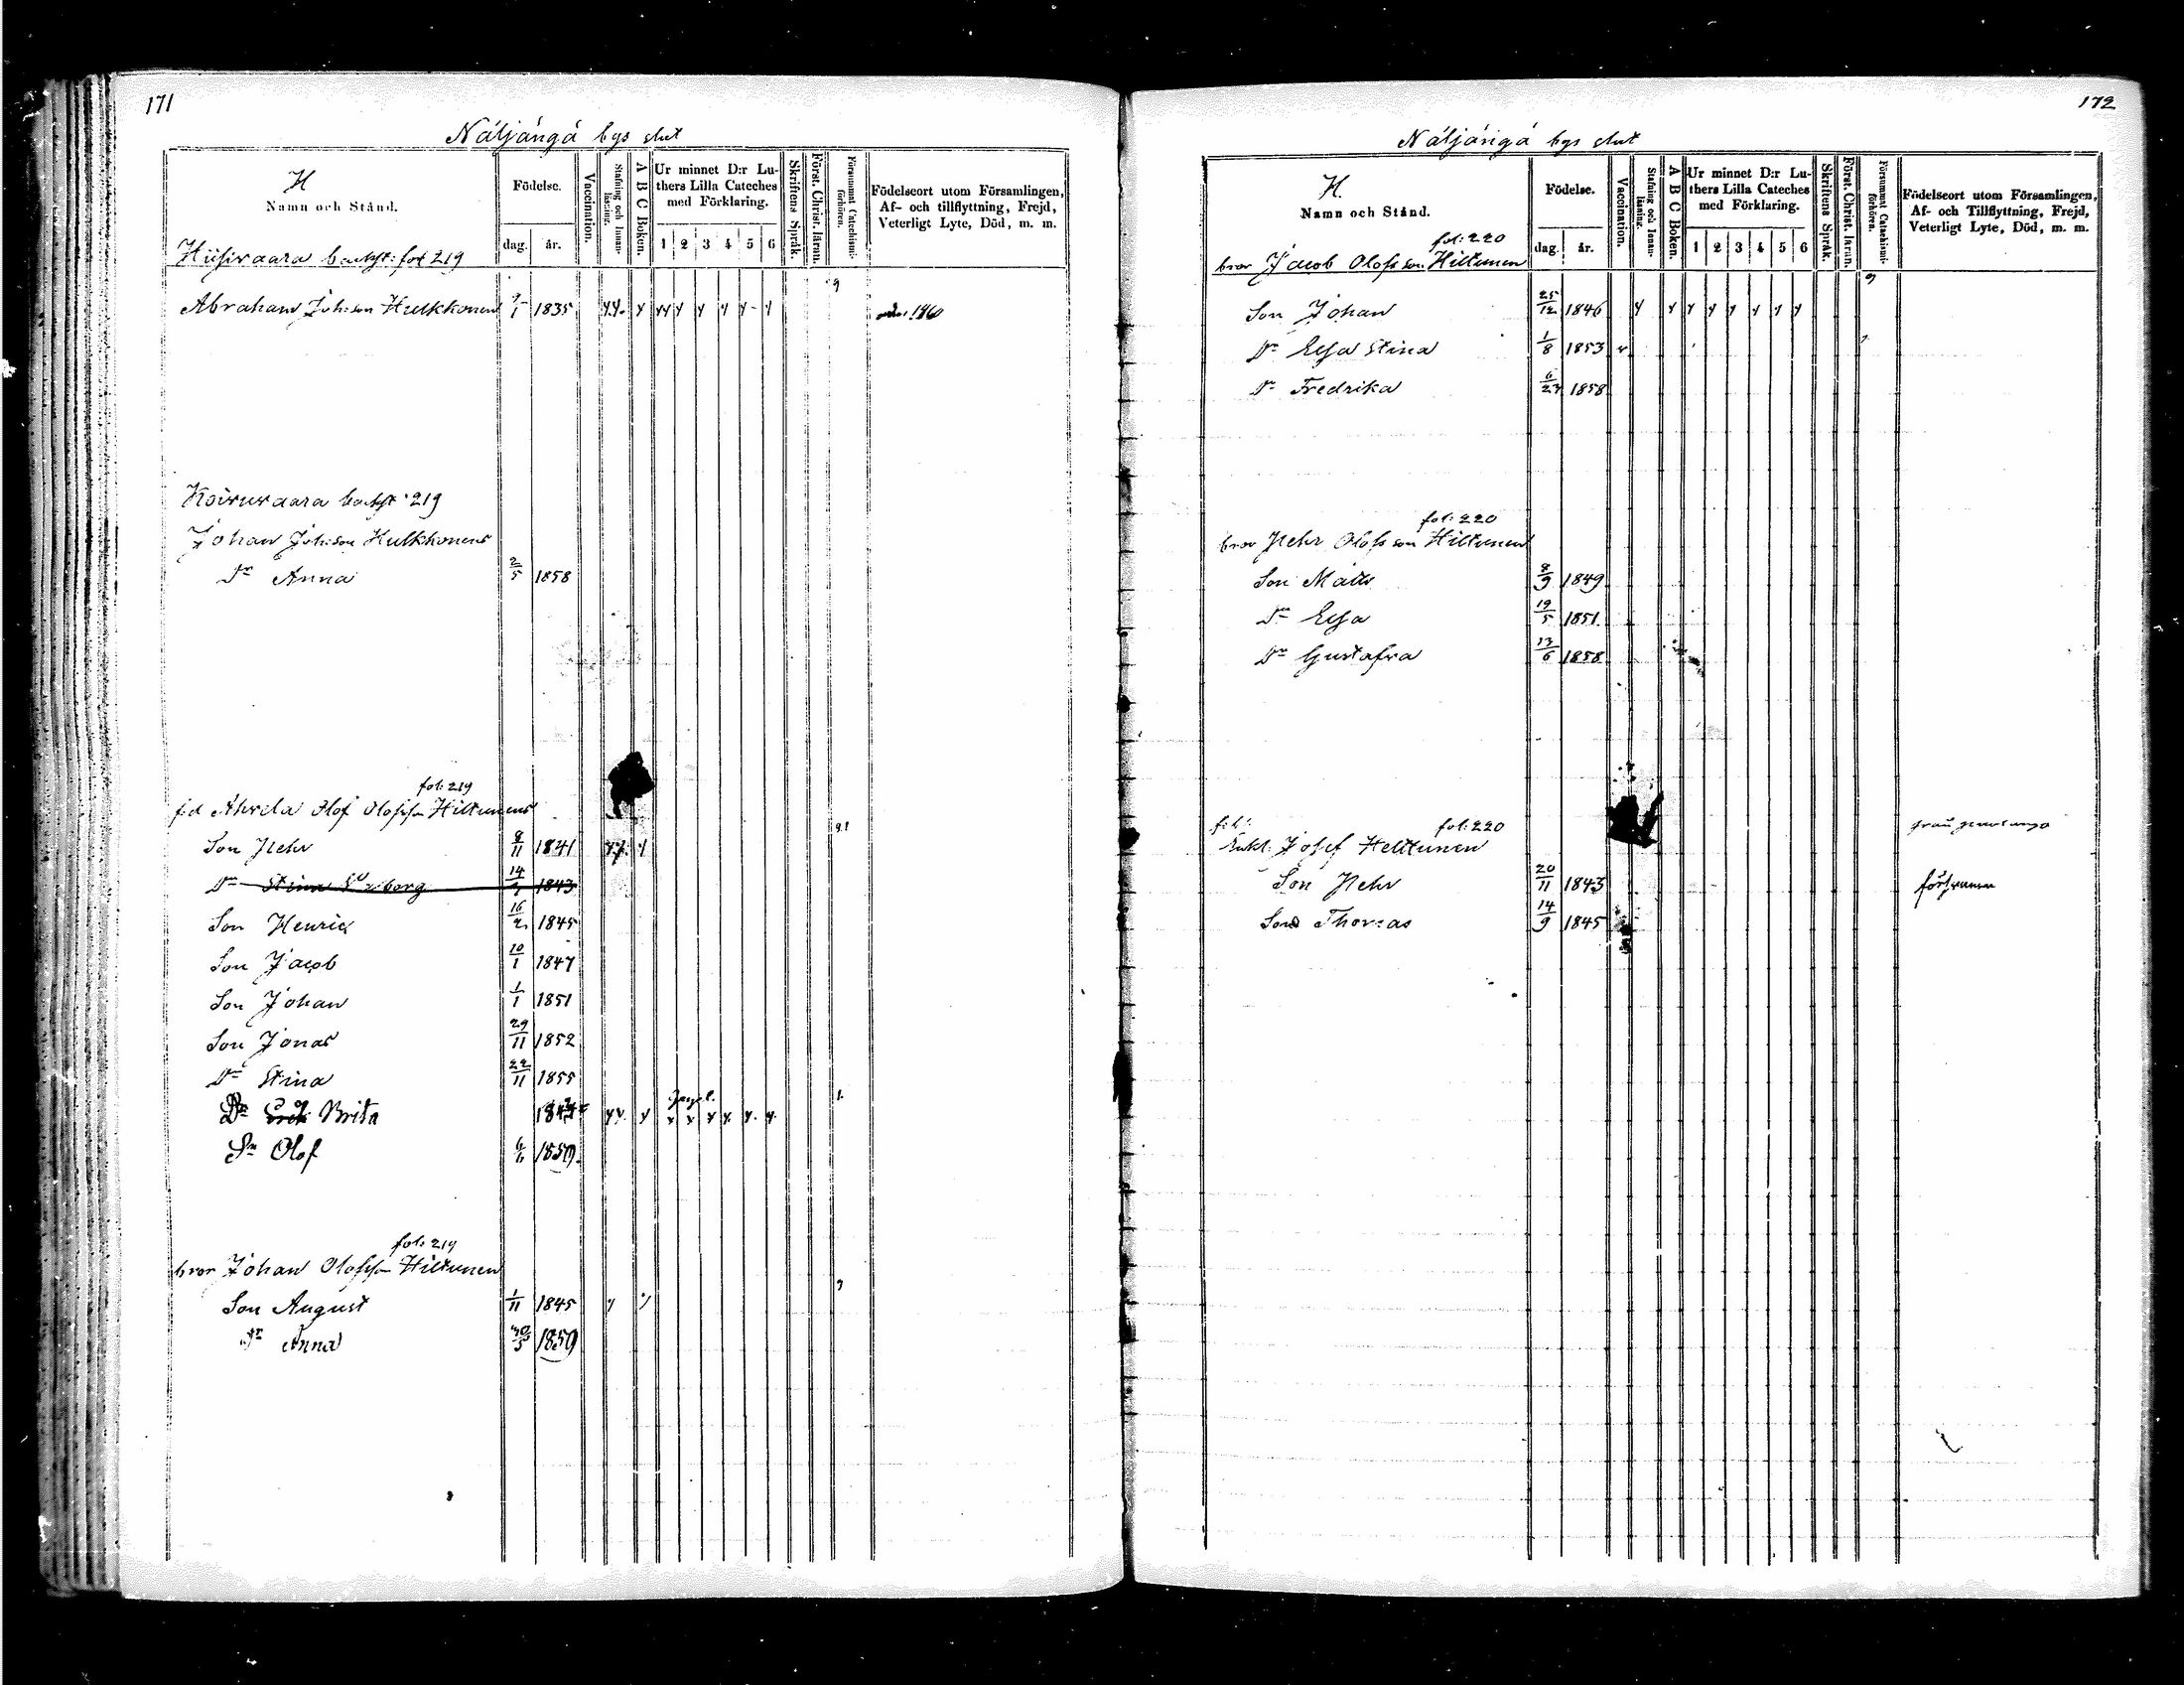 171
Näljängä bys slut
H
Namn och Stånd.
Födelse.
dag. år.
Vaccination.
Stafning och Innanläsning.
A B C Boken.
Ur minnet D:r Luthers Lilla Cateches med Förklaring.
1 2 3 4 5 6
Skriftens Språk.
Först. Christ. läran.
Försummat Catechismiförhören.
Födelseort utom Församlingen, Af- och tillflyttning, Frejd, Veterligt Lyte, Död, m. m.
Hiisivaara backst: fol 219
9
Abraham Joh:son Hulkkonen 1835 1860
Koiruvaara backst 219
Johan Joh:son Hulkkonens
Dr Anna 2/5 1858
fol: 219
Ahvela Olof Olofsson Hiltunens
Son Pehr 8/11 1841
Dr Stina 14 1843
Son Henric 16/2 1845
Son Jacob 10/1 1847
Son Johan 1/1 1851
Son Jonas 29/11 1852
Dr Stina 22/11 1855
Dr Brita
Sn Olof 1859
fol: 219
bror Johan Olofsson Hiltunen
Son August 1/11 1845
Dr Anna 30/5 1859
172
Näljängä bys slut
H.
Namn och Stånd.
Födelse.
dag. år.
Vaccination.
Stafning och Innanläsning.
A B C Boken.
Ur minnet D:r Luthers Lilla Cateches med Förklaring.
1 2 3 4 5 6
Skriftens Språk.
Först. Christ. läran.
Försummat Catechismiförhören.
Födelseort utom Församlingen, Af- och Tillflyttning, Frejd, Veterligt Lyte, Död, m. m.
fol: 220
bror Jacob Olofsson Hiltunen
9
Son Johan 25/12 1846
Dr Elsa Stina 1/8 1853
Dr Fredrika 1858
fol: 220
bror Pehr Olofsson Hiltunen
Son Matts 8/9 1849
Dr Elsa 19/5 1851
Dr Gustafva 13/6 1858
fol: 220
Enkl. Josef Heiltunen
Son Pehr 20/11 1843
Son Thomas 14/9 1845